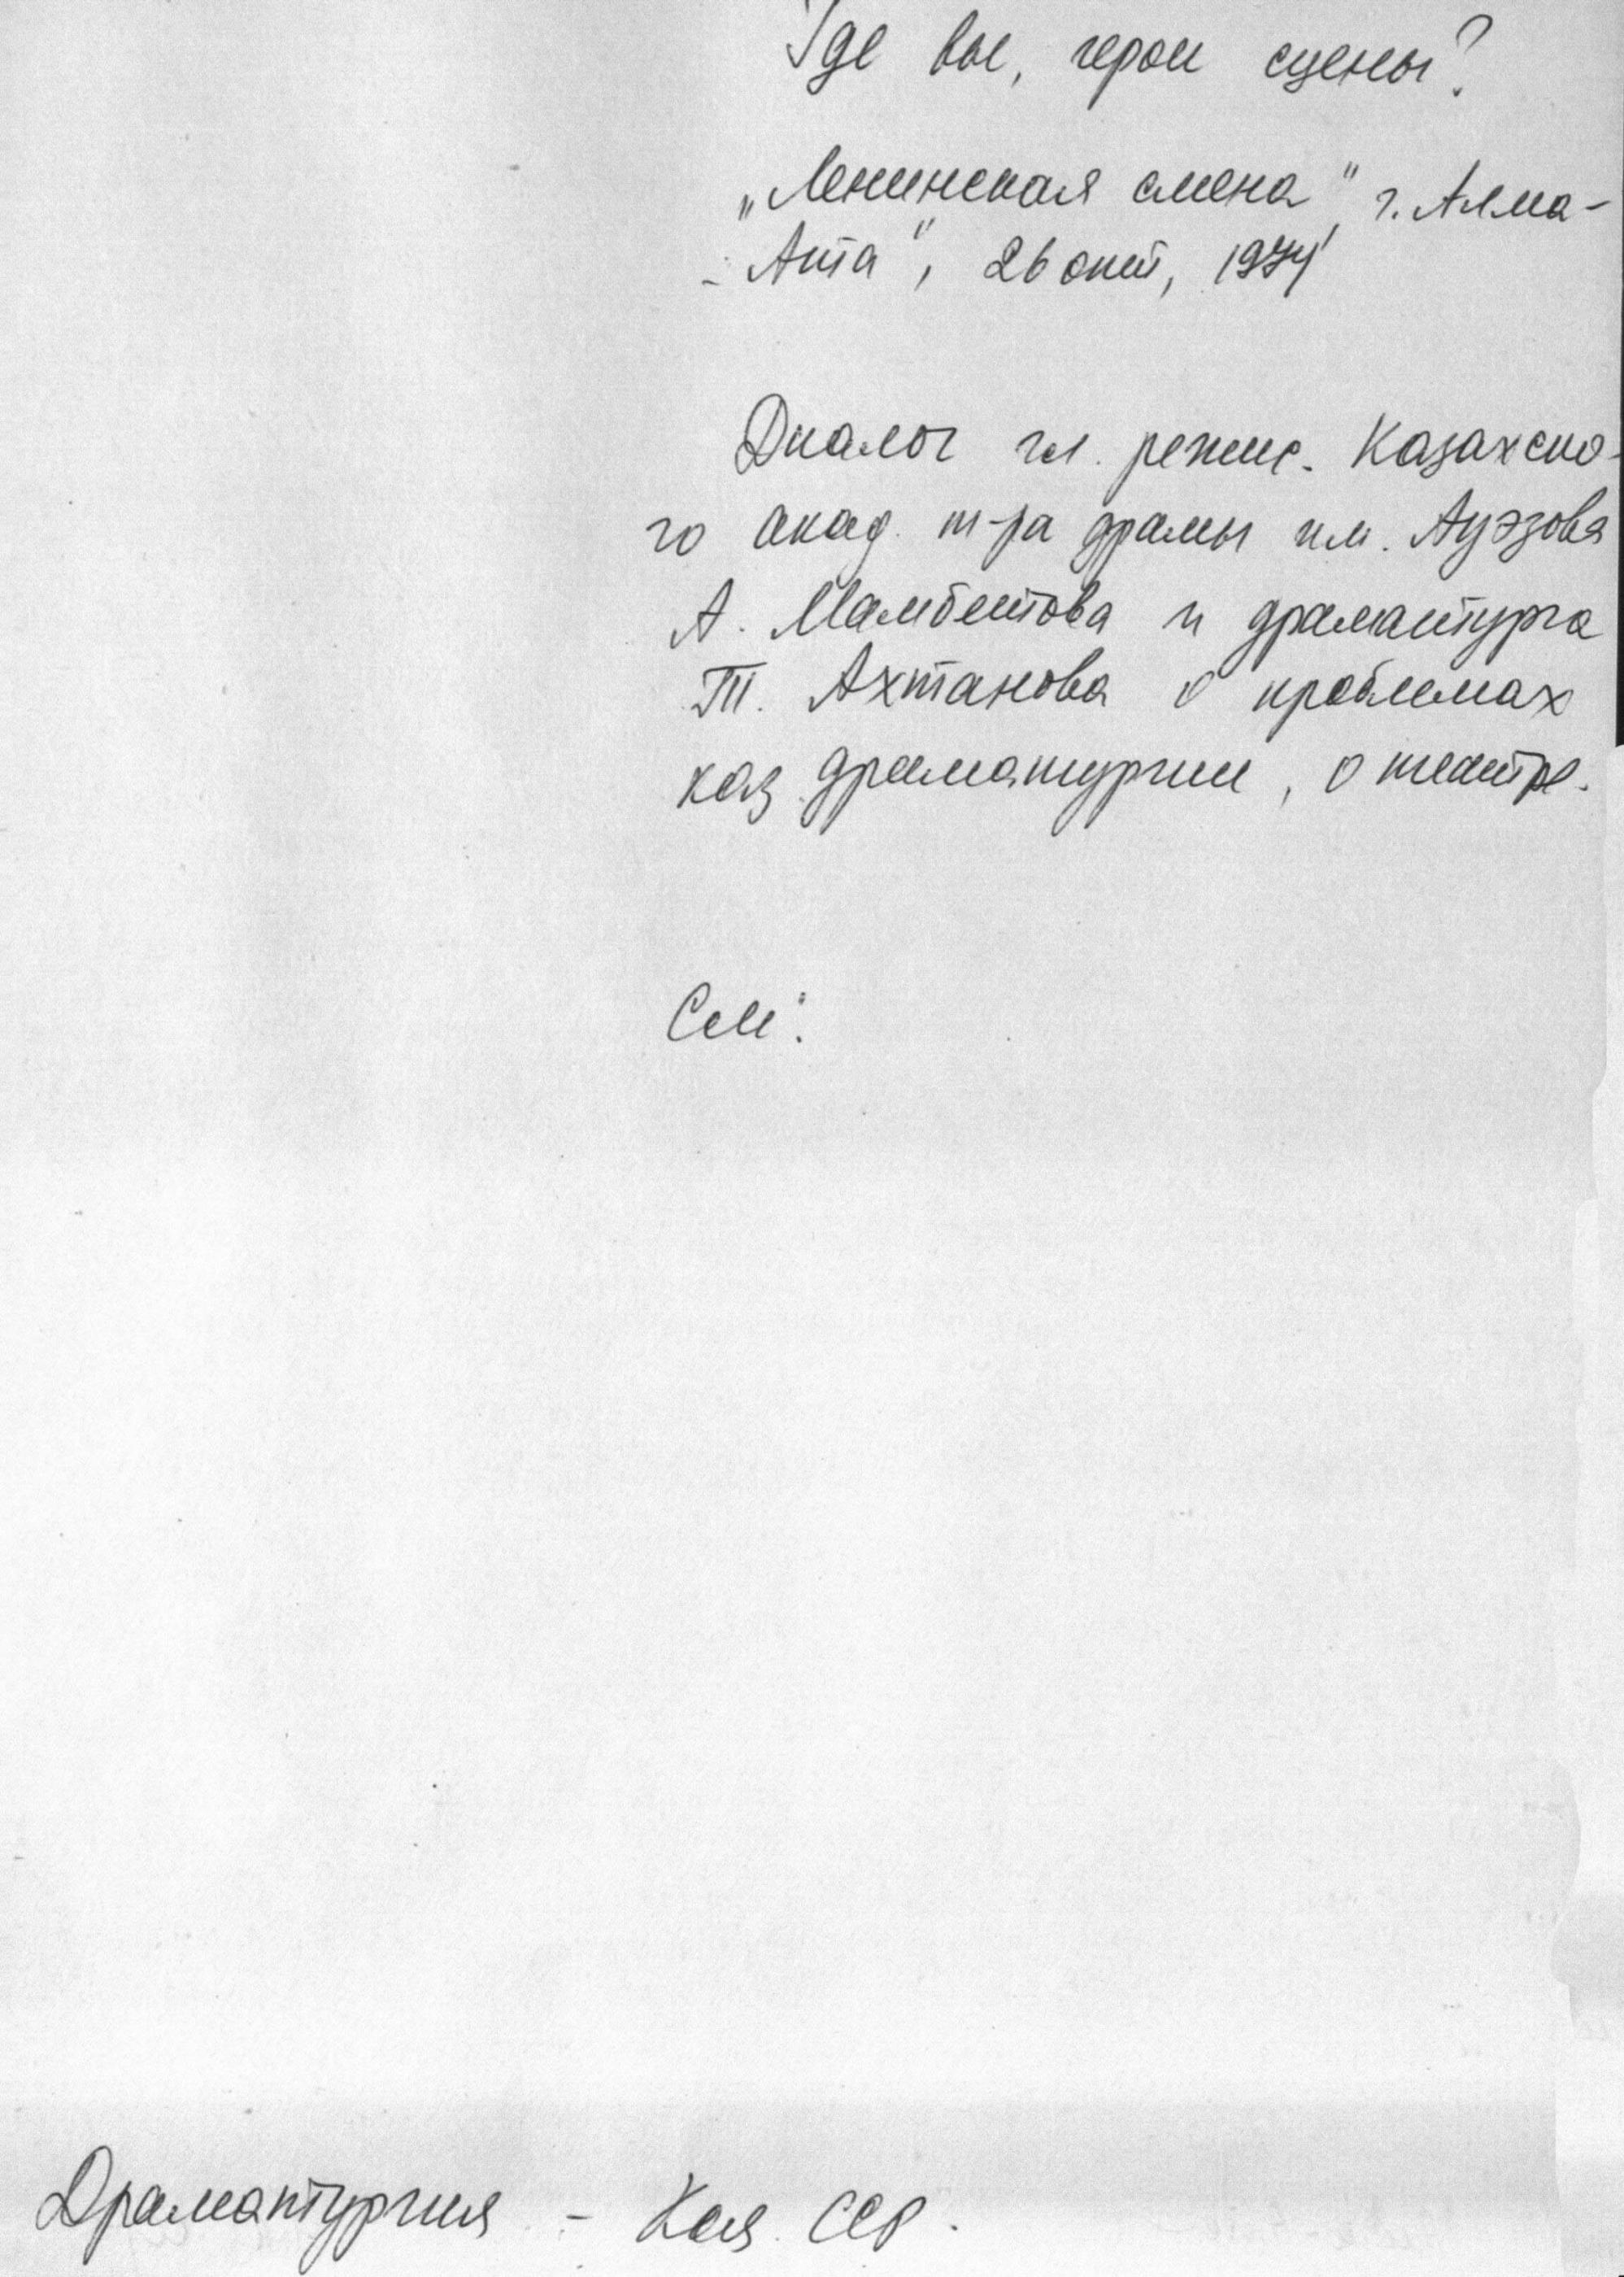 Где вы, герои сцены?
„Ленинская смена", г. Алма-
- Ата", 26 окт, 1974
Диалог гл. режис. Казахско-
го акад. т-ра драмы им. Ауэзова
А. Мамбетова и драматурга
Т. Ахтанова о проблемах
каз. драматургии, о театре.
См:
Драматургия - Каз. ССР.